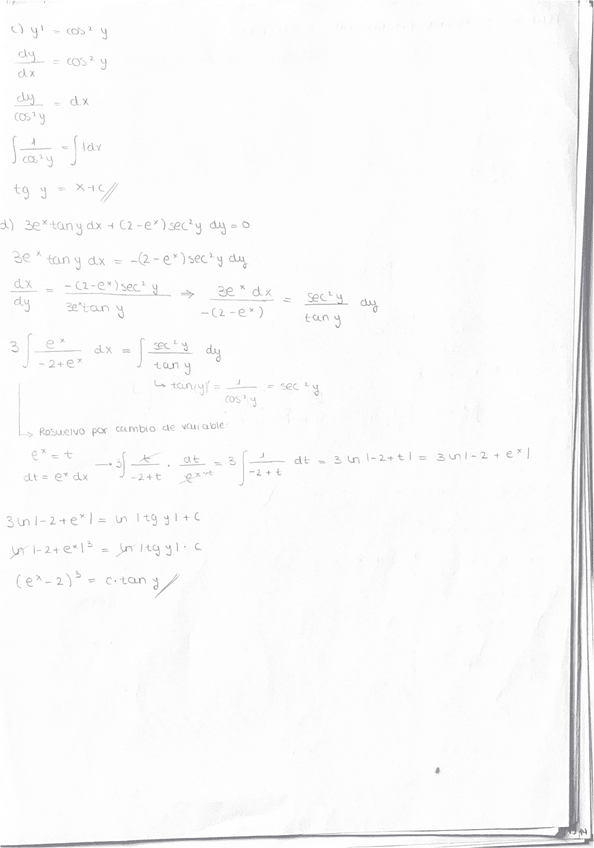 c) y' = cos² y
dy/dx = cos² y
dy/cos²y = dx
∫ 1/cos²y = ∫ 1dx
tg y = x+c //
d) 3eˣ tan y dx + (2-eˣ) sec² y dy = 0
3eˣ tan y dx = -(2-eˣ) sec² y dy
dx/dy = -(2-eˣ) sec² y / 3eˣ tan y ⇒ 3eˣ dx / -(2-eˣ) = sec² y / tan y dy
3 ∫ eˣ/-2+eˣ dx = ∫ sec² y/tan y dy
↳ tan(y)' = 1/cos²y = sec² y
↳ Resuelvo por cambio de variable:
eˣ = t
dt = eˣ dx → 3∫ t/-2+t · dt/eˣ=t = 3 ∫ 1/-2+t dt = 3 ln |-2+t| = 3 ln |-2 + eˣ|
3 ln |-2+eˣ| = ln |tg y| + c
ln |-2+eˣ|³ = ln |tg y| · c
(eˣ-2)³ = c · tan y //